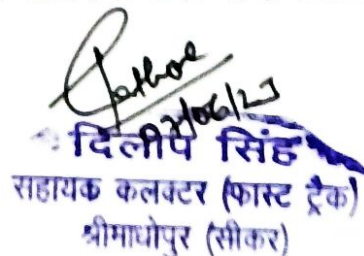 दिलीप सिंह
सहायक कलक्टर (फास्ट ट्रैक)
श्रीमाधोपुर (सीकर)